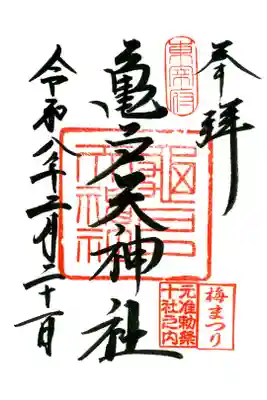 奉拝
東宰府
亀戸天神社
梅まつり
元准勅祭
十社之内
令和八年二月二十一日